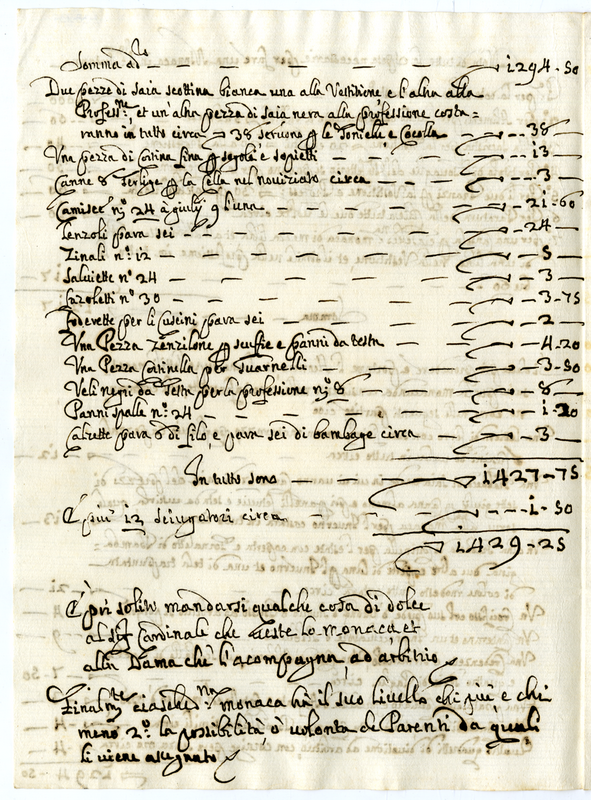 Somma ad.to — 1294-50
Due pezze di saia scottina bianca una alla Vestitione e l'altra alla
Profess.ne, et un'altra pezza di saia nera alla professione costa=
ranno in tutto circa 38 seruono p le Tonicelle, e Cocolla — 38
Vna pezza di Cortina fina p sogoli e sopietti — 13
Canne 8 Terlige p la Cella nel nouiziato circa — 3
Camisce n.o 24 à giulij 9 l'una — 21-60
Lenzoli para sei — 24
Zinali n.o 12 — 5
Saluiette n.o 24 — 3
Fazoletti n.o 30 — 3-75
Foderette per li Cuscini para sei — 2
Vna Pezza Zenzilone p scuffie e panni da testa — 4-20
Vna Pezza Cortinella per Guarnelli — 3-50
Veli negri da Testa per la professione n.o 8 — 8
Panni spalle n.o 24 — 1-20
Calzette para 6 di filo, e para sei di bambage circa — 3
In tutto sono — 1427-75
E piu' 12 sciugatori circa — 1-50
1429-25
E' poi solito mandarsi qualche cosa di dolce
al Sig.r Cardinale che ueste la monaca et
alla Dama che l'acompagna, ad arbitrio
Finalm.te ciasched.na monaca hà il suo Liuello chi più e chi
meno 2.o la possibilità ò uolontà de Parenti da quali
li uiene assegnato